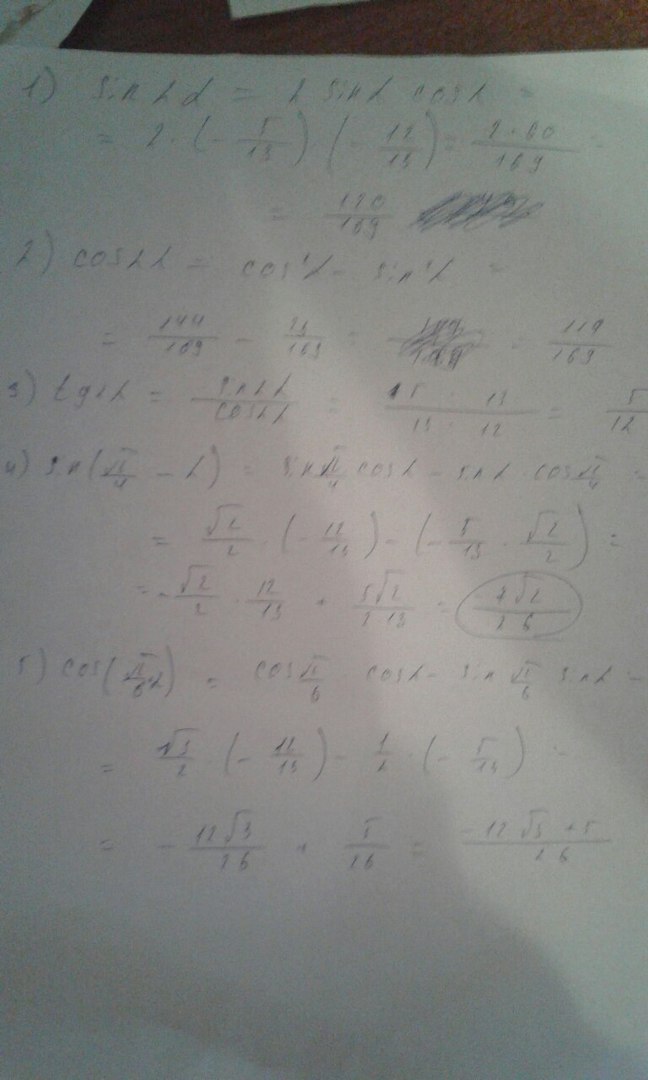 1) sin 2α = 2 sin α cos α =
= 2 · (- 5/13) · (- 12/13) = 2·60/169 =
= 120/169
2) cos 2α = cos²α - sin²α =
= 144/169 - 25/169 = = 119/169
3) tg 2α = sin 2α / cos 2α = 5 · 13 / 13 · 12 = 5/12
4) sin(π/4 - α) = sin π/4 cos α - sin α · cos π/4 =
= √2/2 · (- 12/13) - (- 5/13 · √2/2) =
= - √2/2 · 12/13 + 5√2/2·13 = - 7√2/26
5) cos(π/6 α) = cos π/6 cos α - sin π/6 sin α =
= √3/2 (- 12/13) - 1/2 · (- 5/13) =
= - 12√3/26 + 5/26 = -12√3 + 5/26